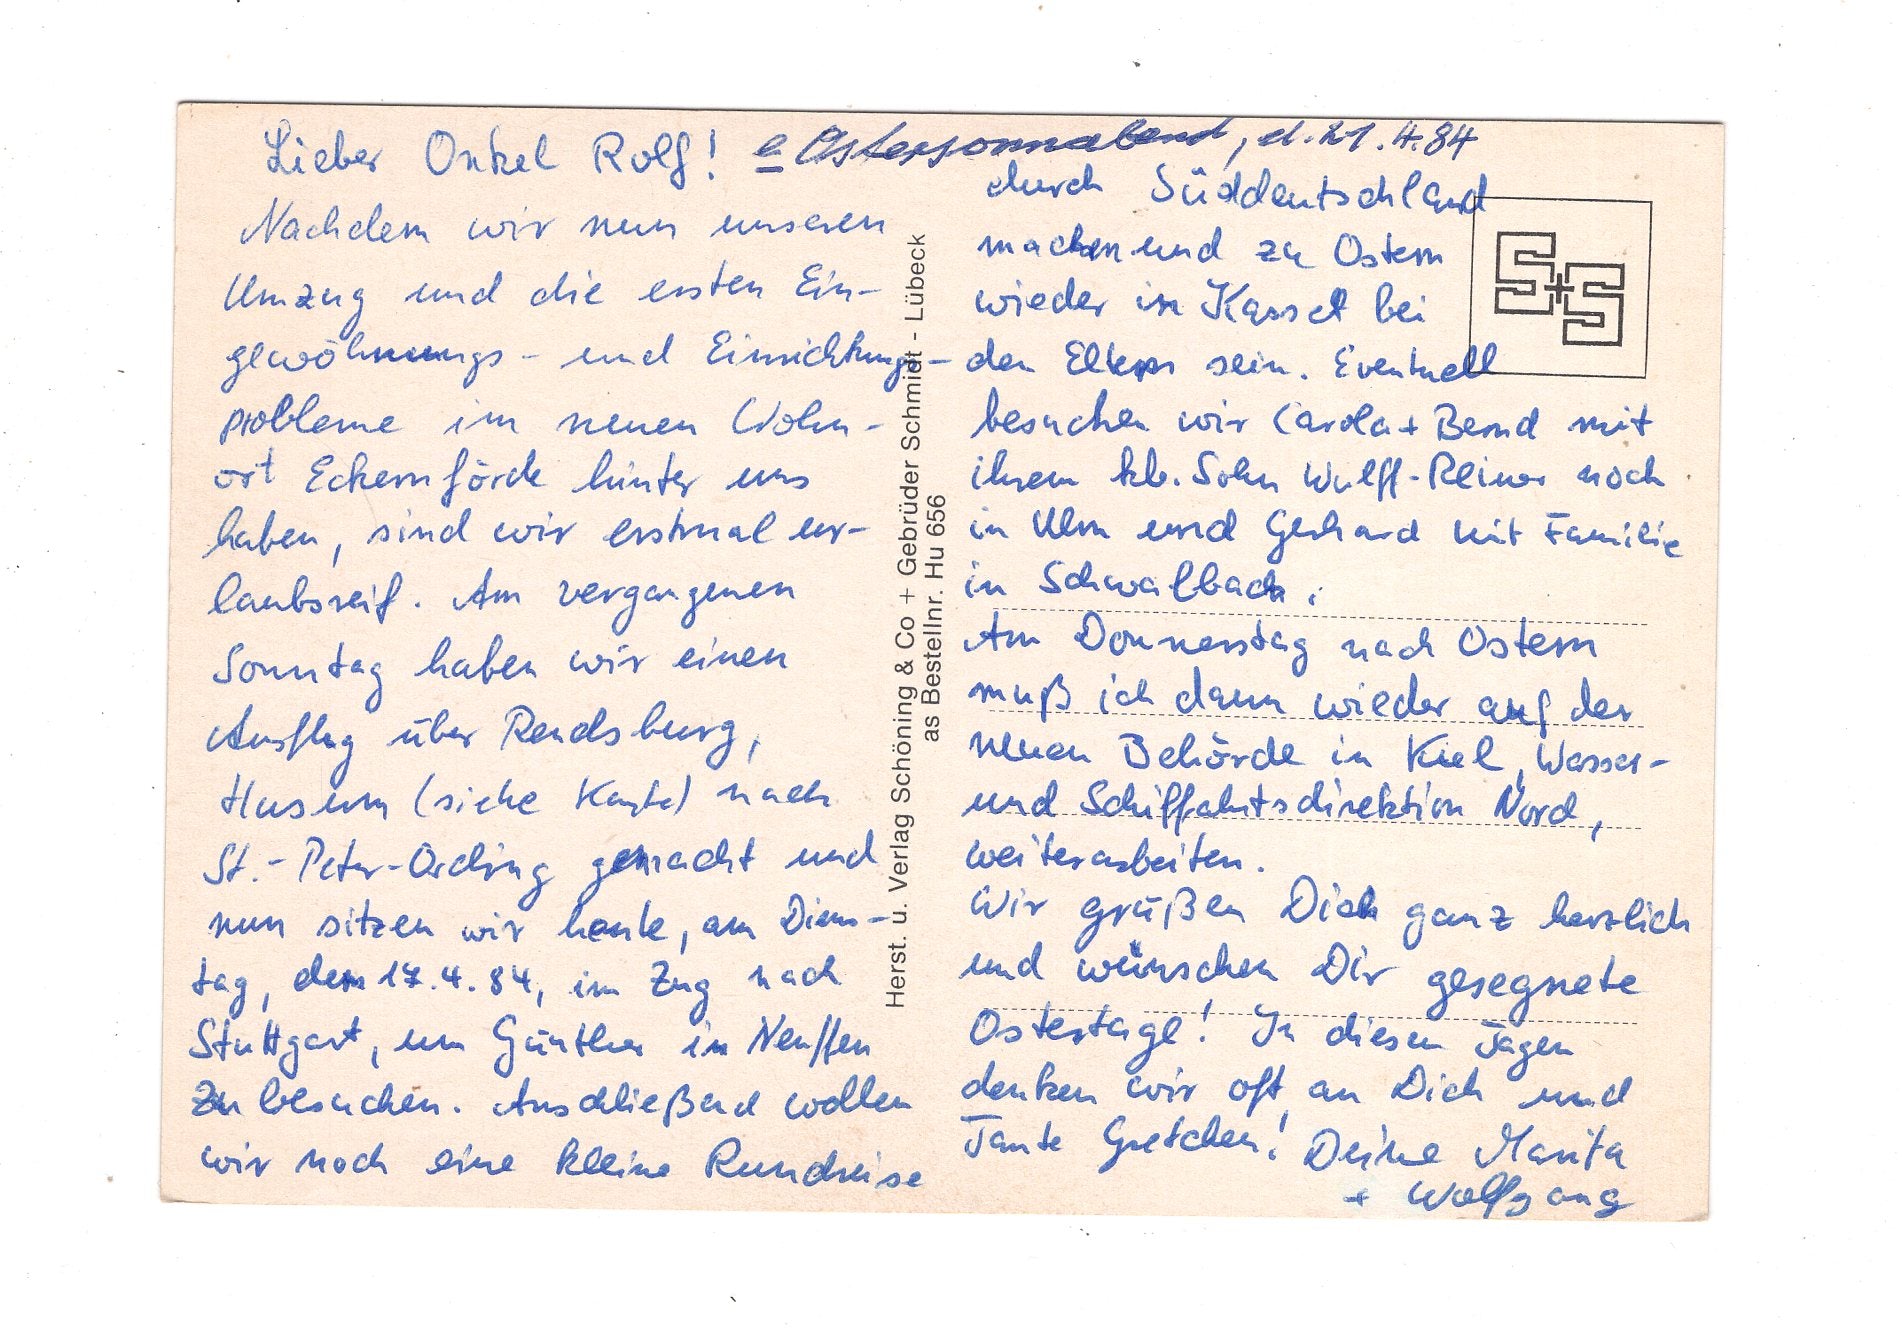 Lieber Onkel Rolf!
e Ostersonnabend, d. 21.4.84
Nachdem wir nun unseren
Umzug und die ersten Ein-
gewöhnungs- und Einrichtungs-
probleme im neuen Wohn-
ort Eckernförde hinter uns
haben, sind wir erstmal ur-
laubsreif. Am vergangenen
Sonntag haben wir einen
Ausflug über Rendsburg,
Husum (siehe Karte) nach
St.-Peter-Ording gemacht und
nun sitzen wir heute, am Diens-
tag, dem 17.4.84, im Zug nach
Stuttgart, um Günther in Neuffen
zu besuchen. Anschließend wollen
wir noch eine kleine Rundreise
durch Süddeutschland
machen und zu Ostern
wieder in Kassel bei
den Eltern sein. Eventuell
besuchen wir Carola + Bernd mit
ihrem kl. Sohn Wulff-Reiner noch
in Ulm und Gerhard mit Familie
in Schwalbach.
Am Donnerstag nach Ostern
muß ich dann wieder auf der
neuen Behörde in Kiel, Wasser-
und Schiffahrtsdirektion Nord,
weiterarbeiten.
Wir grüßen Dich ganz herzlich
und wünschen Dir gesegnete
Ostertage! In diesen Tagen
denken wir oft an Dich und
Tante Gretchen! Deine Marita
+ Wolfgang
Herst. u. Verlag Schöning & Co + Gebrüder Schmidt - Lübeck
as Bestellnr. Hu 656
S+S